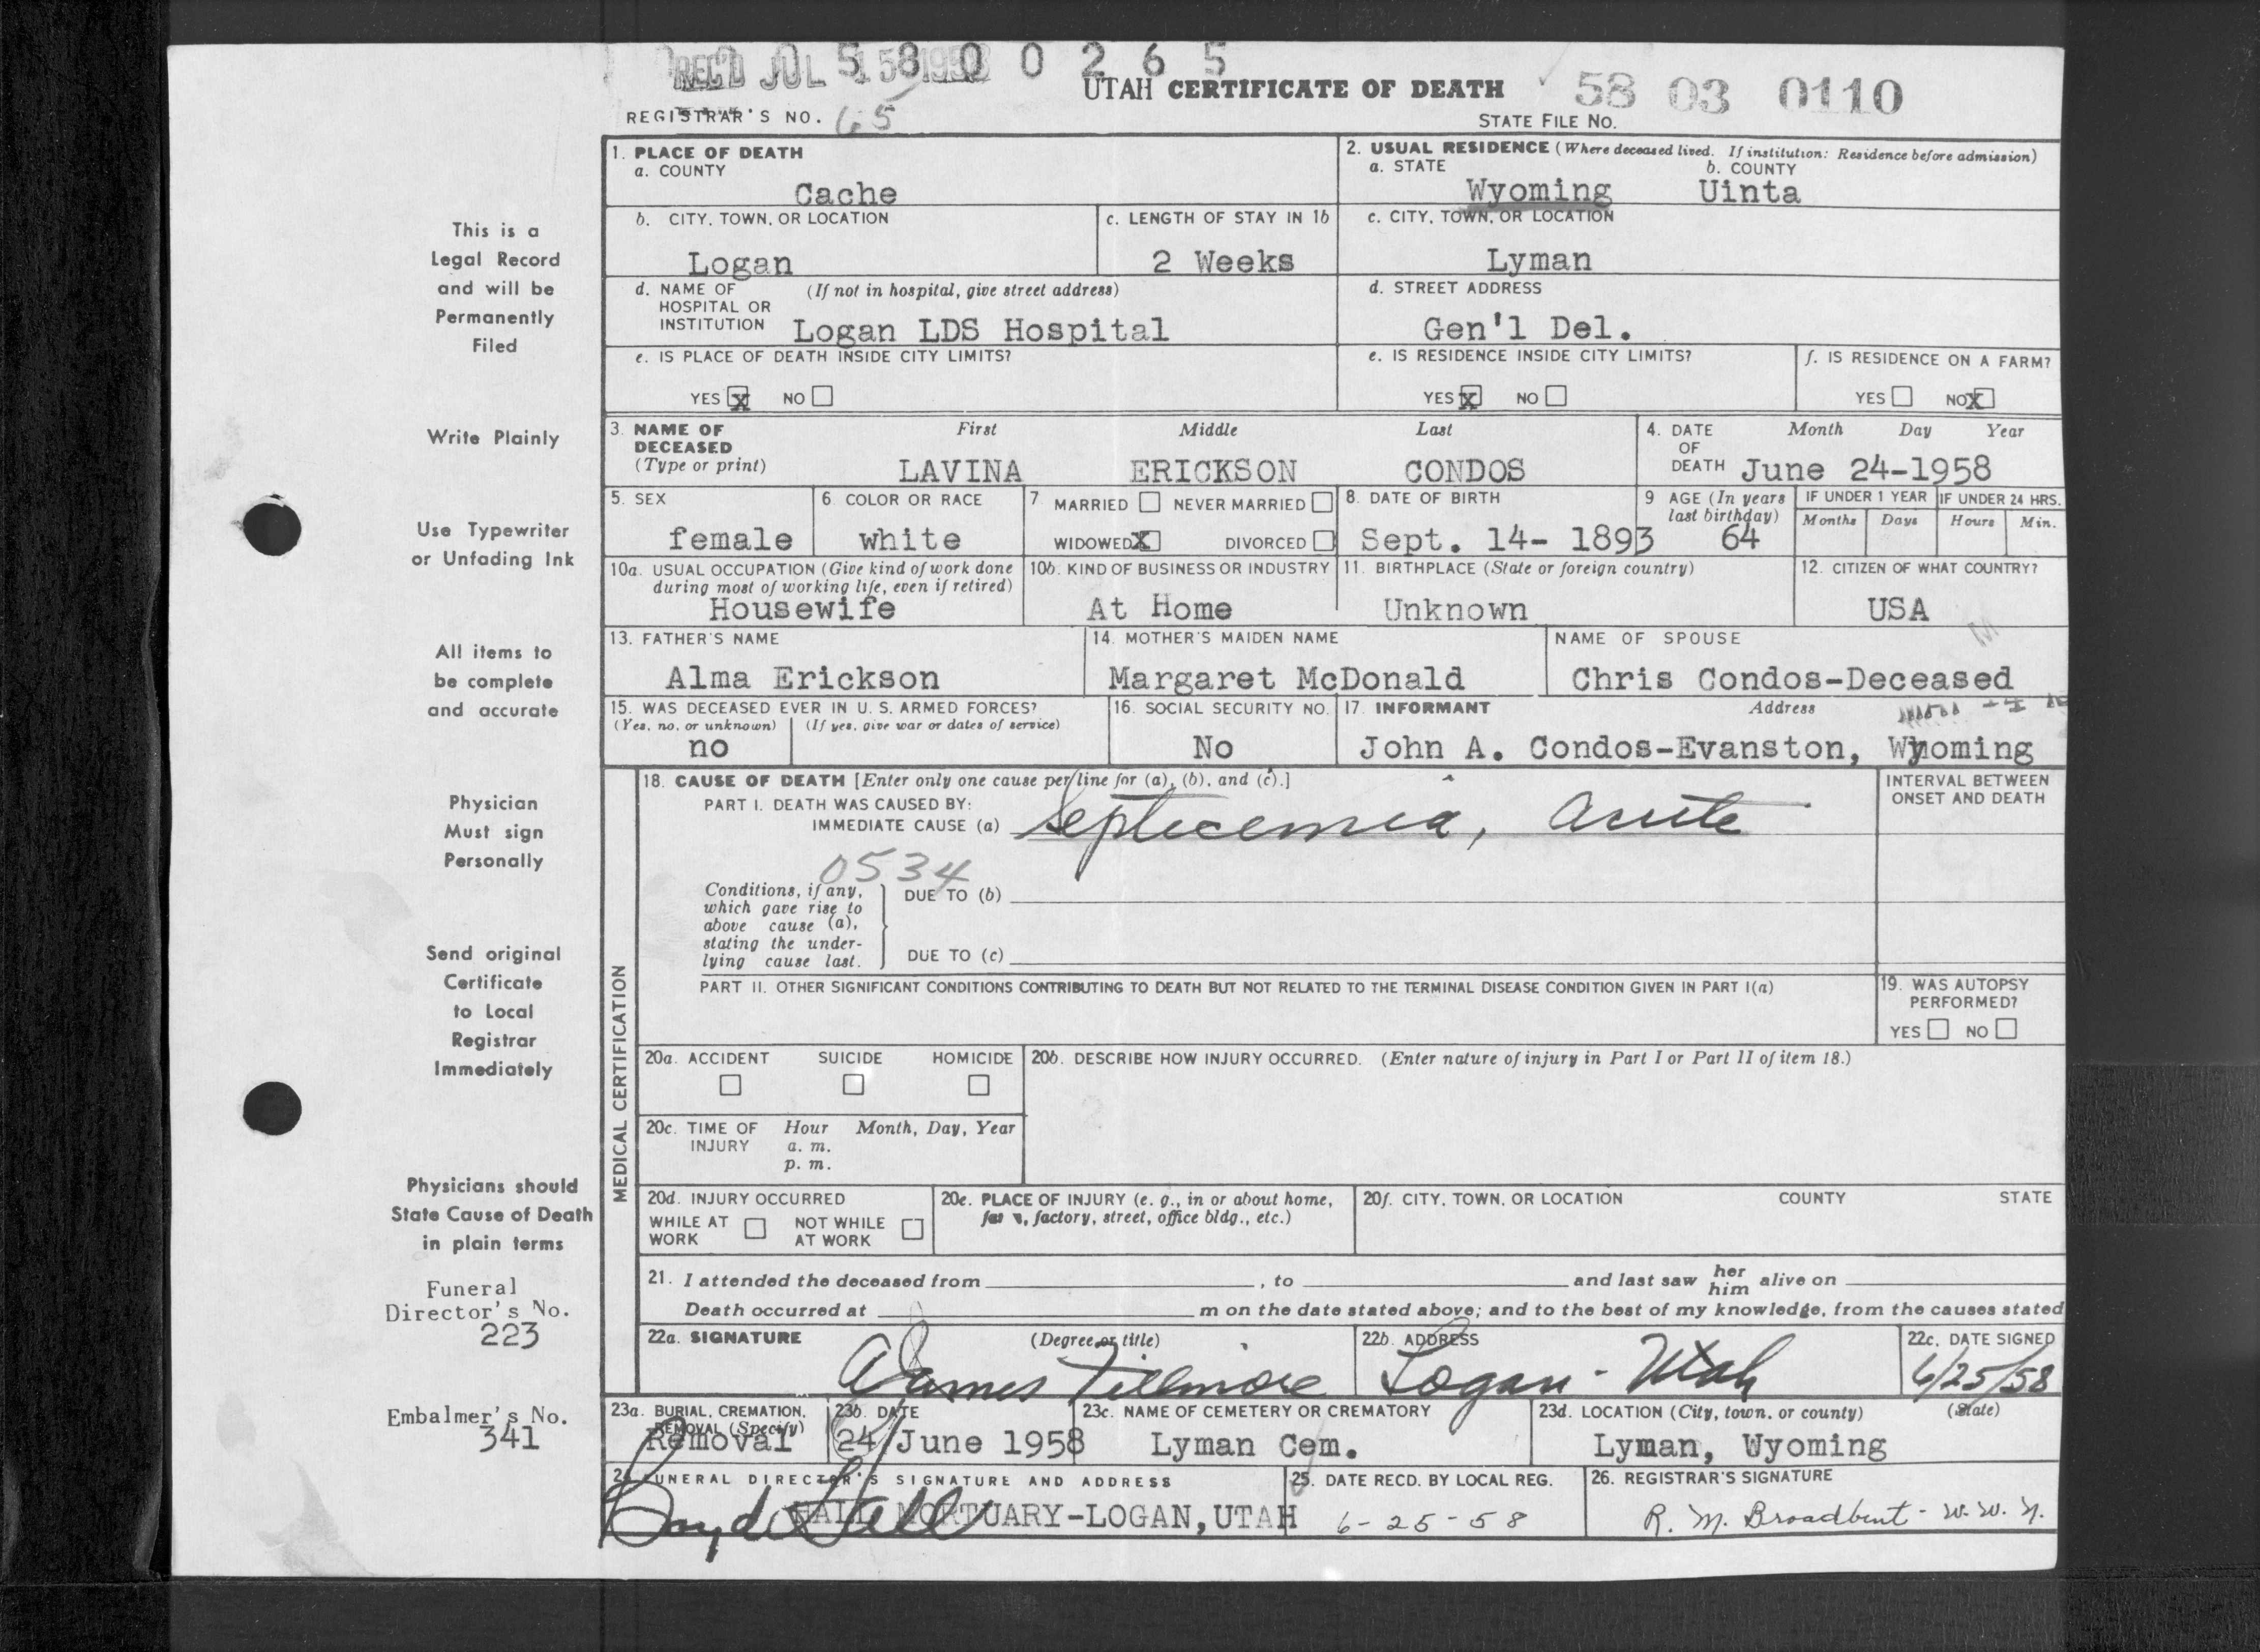 REC'D JUL 15 1958
5 8 0 0 2 6 5
UTAH CERTIFICATE OF DEATH
58 03 0110
REGISTRAR'S NO. 65
STATE FILE NO.
1. PLACE OF DEATH
a. COUNTY
Cache
2. USUAL RESIDENCE (Where deceased lived. If institution: Residence before admission)
a. STATE b. COUNTY
Wyoming Uinta
b. CITY, TOWN, OR LOCATION
Logan
c. LENGTH OF STAY IN 1b
2 Weeks
c. CITY, TOWN, OR LOCATION
Lyman
d. NAME OF (If not in hospital, give street address)
HOSPITAL OR
INSTITUTION Logan LDS Hospital
d. STREET ADDRESS
Gen'l Del.
e. IS PLACE OF DEATH INSIDE CITY LIMITS?
YES X NO
e. IS RESIDENCE INSIDE CITY LIMITS?
YES X NO
f. IS RESIDENCE ON A FARM?
YES NO X
3. NAME OF DECEASED (Type or print)
First Middle Last
LAVINA ERICKSON CONDOS
4. DATE OF DEATH
Month Day Year
June 24-1958
5. SEX
female
6. COLOR OR RACE
white
7 MARRIED NEVER MARRIED
WIDOWED X DIVORCED
8. DATE OF BIRTH
Sept. 14- 1893
9 AGE (In years last birthday)
64
IF UNDER 1 YEAR
Months Days
IF UNDER 24 HRS.
Hours Min.
10a. USUAL OCCUPATION (Give kind of work done
during most of working life, even if retired)
Housewife
10b. KIND OF BUSINESS OR INDUSTRY
At Home
11. BIRTHPLACE (State or foreign country)
Unknown
12. CITIZEN OF WHAT COUNTRY?
USA
13. FATHER'S NAME
Alma Erickson
14. MOTHER'S MAIDEN NAME
Margaret McDonald
NAME OF SPOUSE
Chris Condos-Deceased
15. WAS DECEASED EVER IN U. S. ARMED FORCES?
(Yes, no, or unknown) (If yes, give war or dates of service)
no
16. SOCIAL SECURITY NO.
No
17. INFORMANT Address
John A. Condos-Evanston, Wyoming
MEDICAL CERTIFICATION
18. CAUSE OF DEATH [Enter only one cause per line for (a), (b), and (c).]
PART I. DEATH WAS CAUSED BY:
IMMEDIATE CAUSE (a) Septicemia, acute
INTERVAL BETWEEN
ONSET AND DEATH
0534
Conditions, if any,
which gave rise to
above cause (a),
stating the under-
lying cause last.
DUE TO (b)
DUE TO (c)
PART II. OTHER SIGNIFICANT CONDITIONS CONTRIBUTING TO DEATH BUT NOT RELATED TO THE TERMINAL DISEASE CONDITION GIVEN IN PART I(a)
19. WAS AUTOPSY
PERFORMED?
YES NO
20a. ACCIDENT SUICIDE HOMICIDE
20b. DESCRIBE HOW INJURY OCCURRED. (Enter nature of injury in Part I or Part II of item 18.)
20c. TIME OF INJURY
Hour Month, Day, Year
a. m.
p. m.
20d. INJURY OCCURRED
WHILE AT WORK NOT WHILE AT WORK
20e. PLACE OF INJURY (e. g., in or about home,
factory, street, office bldg., etc.)
20f. CITY, TOWN, OR LOCATION COUNTY STATE
21. I attended the deceased from , to and last saw her him alive on
Death occurred at m on the date stated above; and to the best of my knowledge, from the causes stated
22a. SIGNATURE (Degree or title)
James Fillmore
22b. ADDRESS
Logan - Utah
22c. DATE SIGNED
6/25/58
23a. BURIAL, CREMATION,
REMOVAL (Specify)
Removal
23b. DATE
24 June 1958
23c. NAME OF CEMETERY OR CREMATORY
Lyman Cem.
23d. LOCATION (City, town, or county) (State)
Lyman, Wyoming
24 FUNERAL DIRECTOR'S SIGNATURE AND ADDRESS
HALL MORTUARY-LOGAN, UTAH
Boyd Hall
25. DATE RECD. BY LOCAL REG.
6-25-58
26. REGISTRAR'S SIGNATURE
R. M. Broadbent - W. W. N.
This is a
Legal Record
and will be
Permanently
Filed
Write Plainly
Use Typewriter
or Unfading Ink
All items to
be complete
and accurate
Physician
Must sign
Personally
Send original
Certificate
to Local
Registrar
Immediately
Physicians should
State Cause of Death
in plain terms
Funeral
Director's No.
223
Embalmer's No.
341